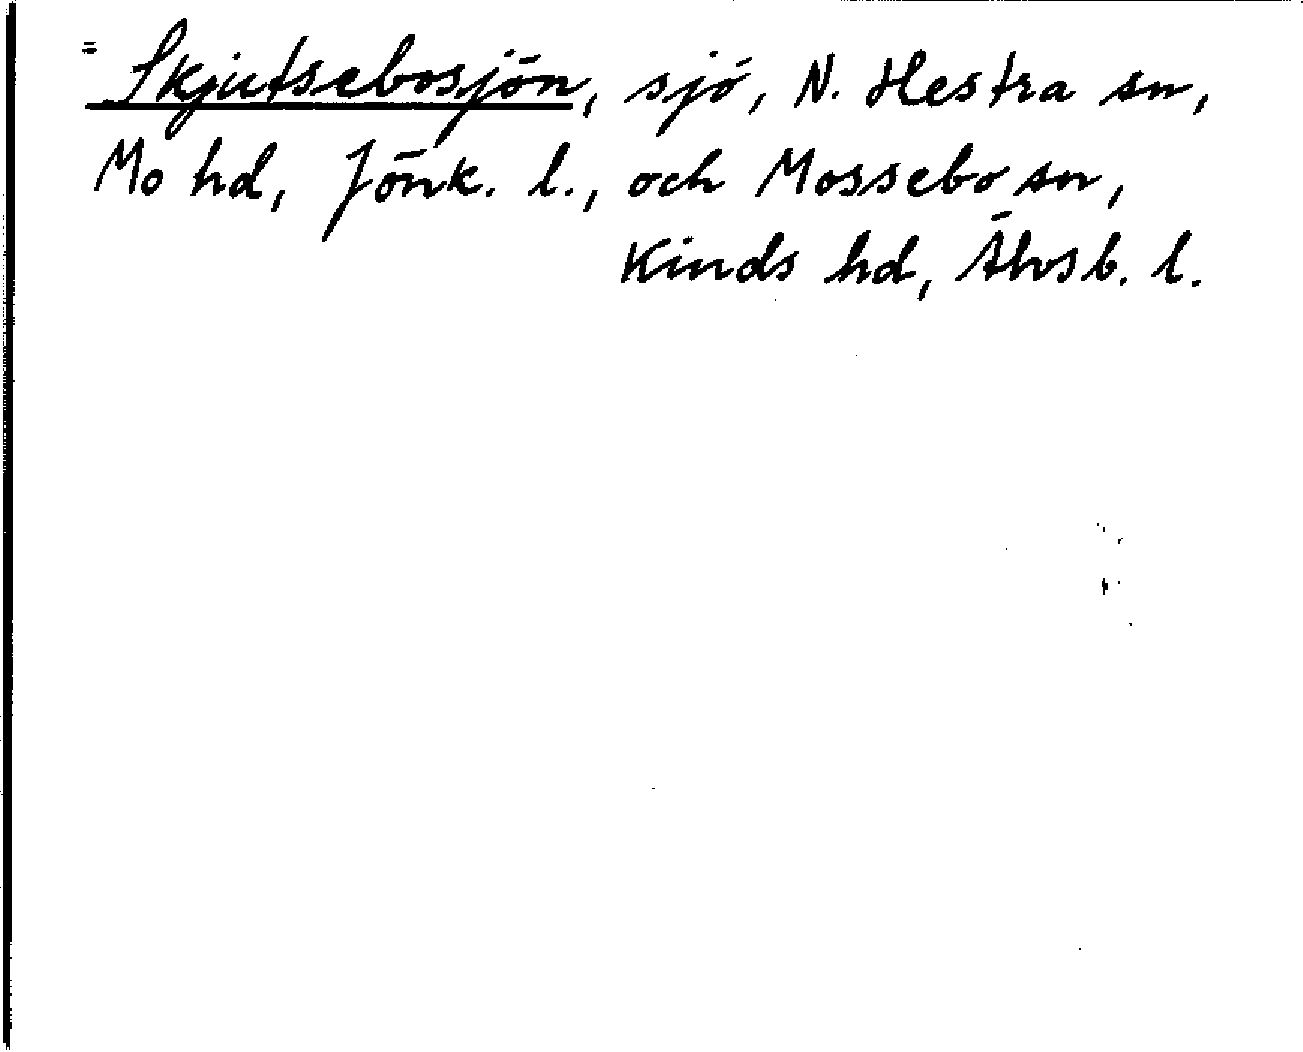 = Skjutsebosjön, sjö, N. Hestra sn,
Mo hd, Jönk. l., och Mossebo sn,
Kinds hd, Älvsb. l.